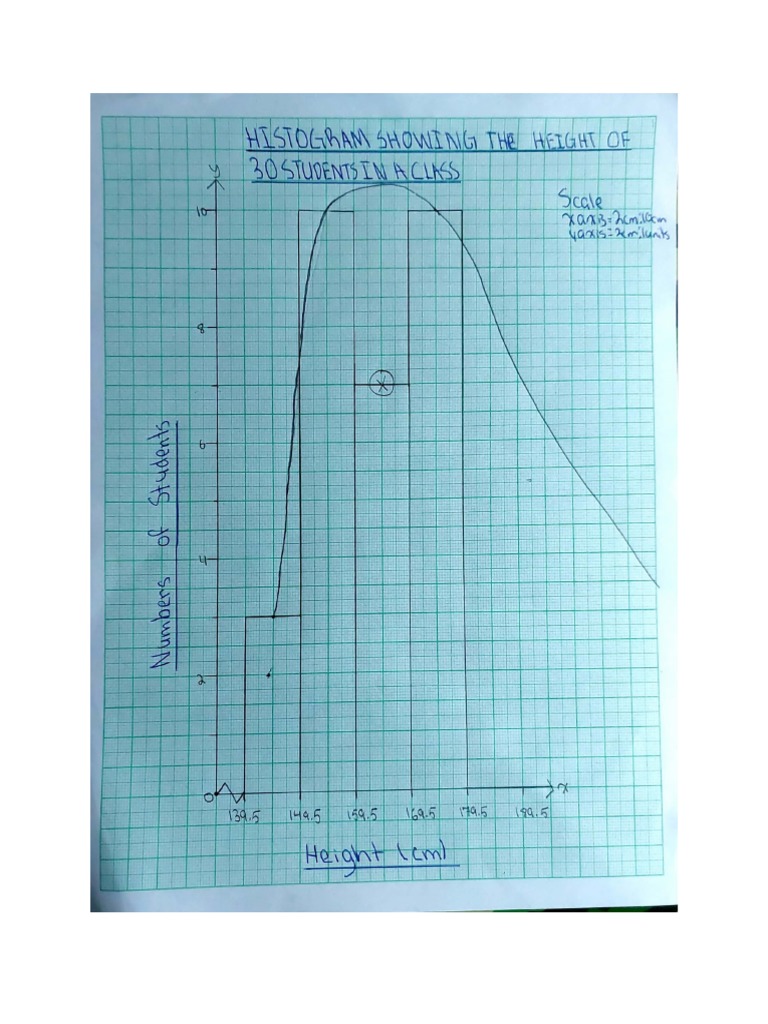 HISTOGRAM SHOWING THE HEIGHT OF
30 STUDENTS IN A CLASS
y
Scale
x axis = 2cm:10cm
y axis = 2cm:1units
10
8
6
4
2
0
Numbers of Students
x
139.5 149.5 159.5 169.5 179.5 189.5
Height (cm)